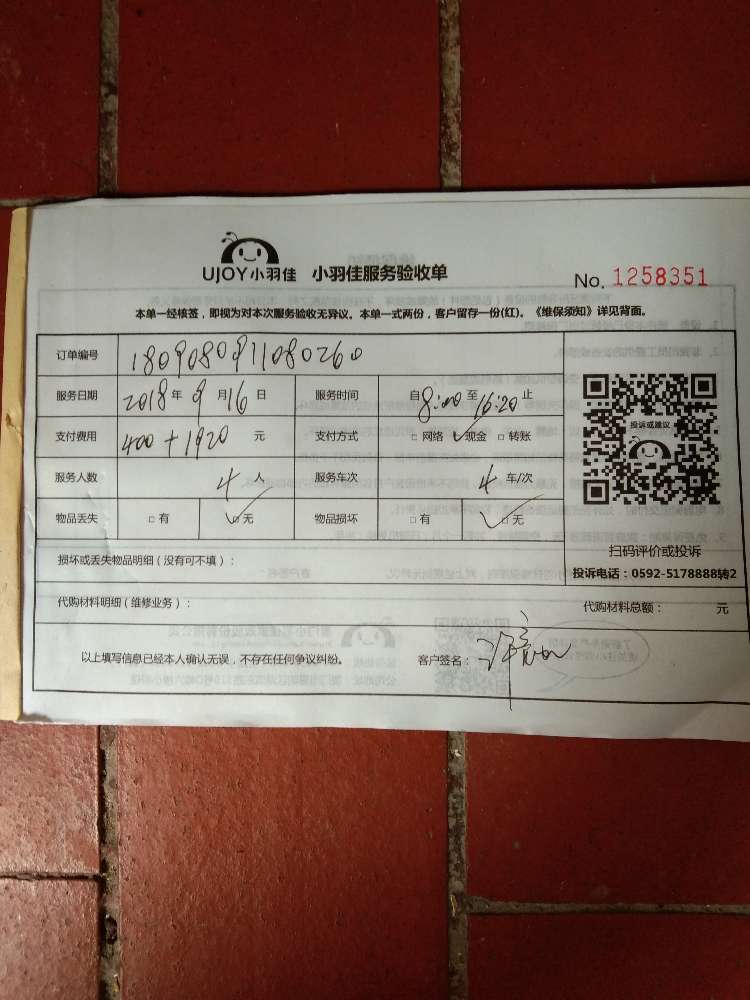 UJOY小羽佳 小羽佳服务验收单
No. 1258351
本单一经核签，即视为对本次服务验收无异议。本单一式两份，客户留存一份(红)。《维保须知》详见背面。
订单编号 1809080911080260
服务日期 2018年 9月 16日 服务时间 自8:00至16:20止
支付费用 400+1920 元 支付方式 □网络 ✓现金 □转账
服务人数 4人 服务车次 4车/次
物品丢失 □有 ✓无 物品损坏 □有 ✓无
投诉或建议
扫码评价或投诉
投诉电话：0592-5178888转2
损坏或丢失物品明细（没有可不填）：
代购材料明细（维修业务）： 代购材料总额： 元
以上填写信息已经本人确认无误，不存在任何争议纠纷。 客户签名：